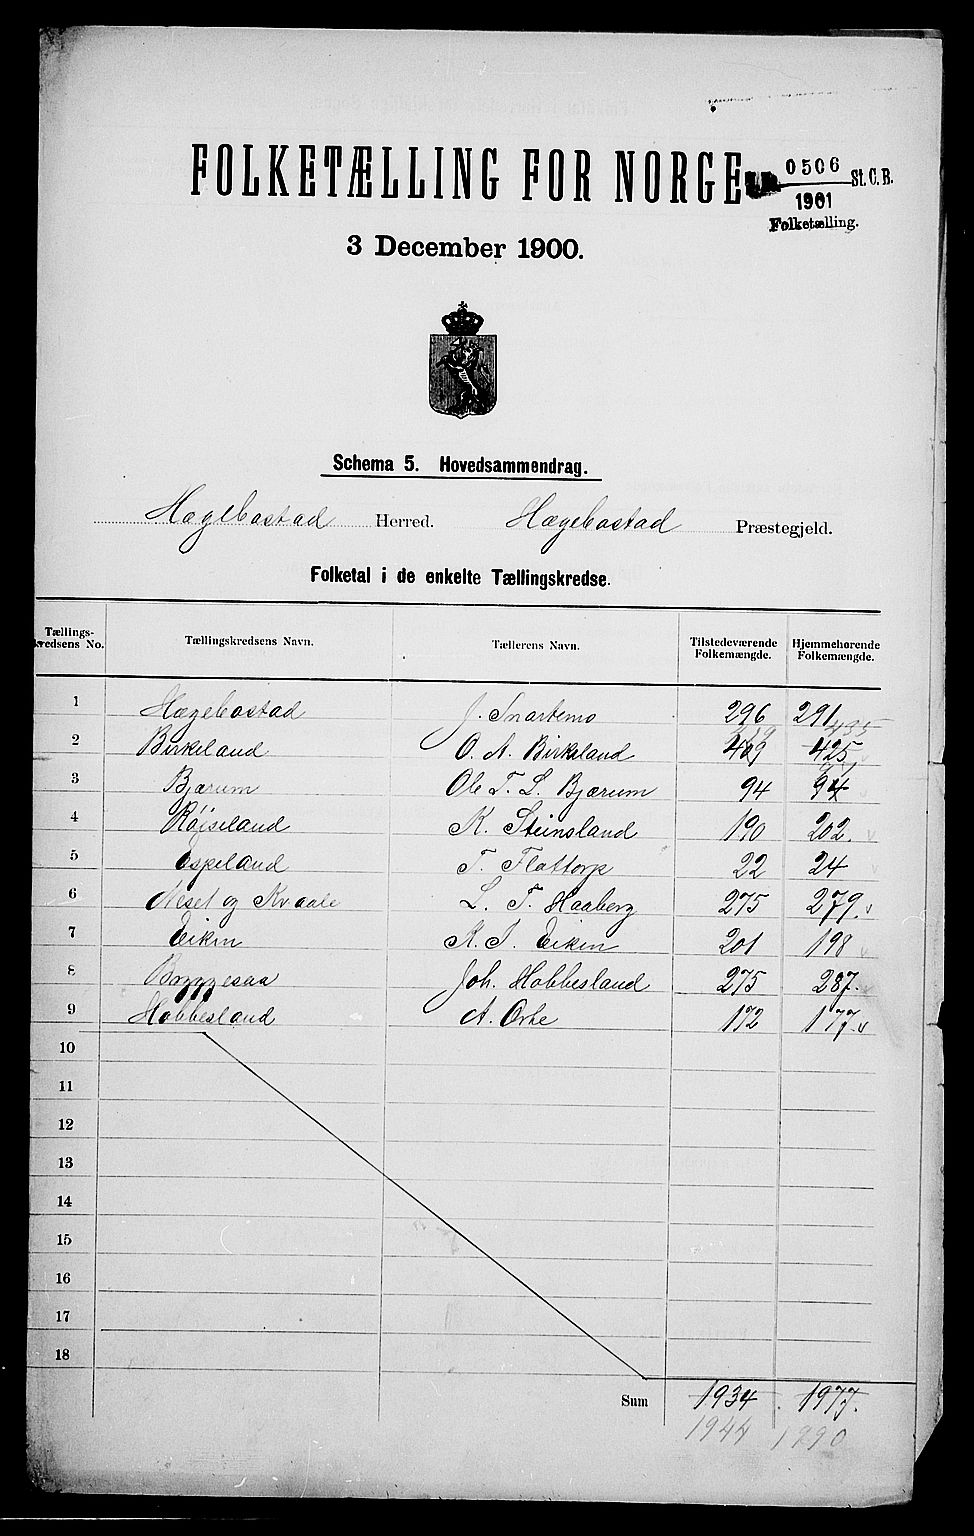 FOLKETÆLLING FOR NORGE
0506
St. C. B.
1901
Folketælling.
3 December 1900.
Schema 5. Hovedsammendrag.
Hægebostad Herred. Hægebostad Præstegjeld.
Folketal i de enkelte Tællingskredse.
Tællings-kredsens No. Tællingskredsens Navn. Tællerens Navn. Tilstedeværende Folkemængde. Hjemmehørende Folkemængde.
1 Hægebostad J. Snartemo 296 291
435
2 Birkeland O. A. Birkeland 409 425
3 Bjærum Ole T. L. Bjærum 94 94
4 Røiseland K. Steinsland 190 202. v
5 Espeland T. Flottorp 22 24 v
6 Neset og Kvaale L. T. Haaberg 275 279. v
7 Eiken K. T. Eiken 201 198 v
8 Bryggesaa Joh. Hobbesland 275 287. v
9 Hobbesland A. Orke 172 177. v
10
11
12
13
14
15
16
17
18
Sum 1934 1977.
1944 1990